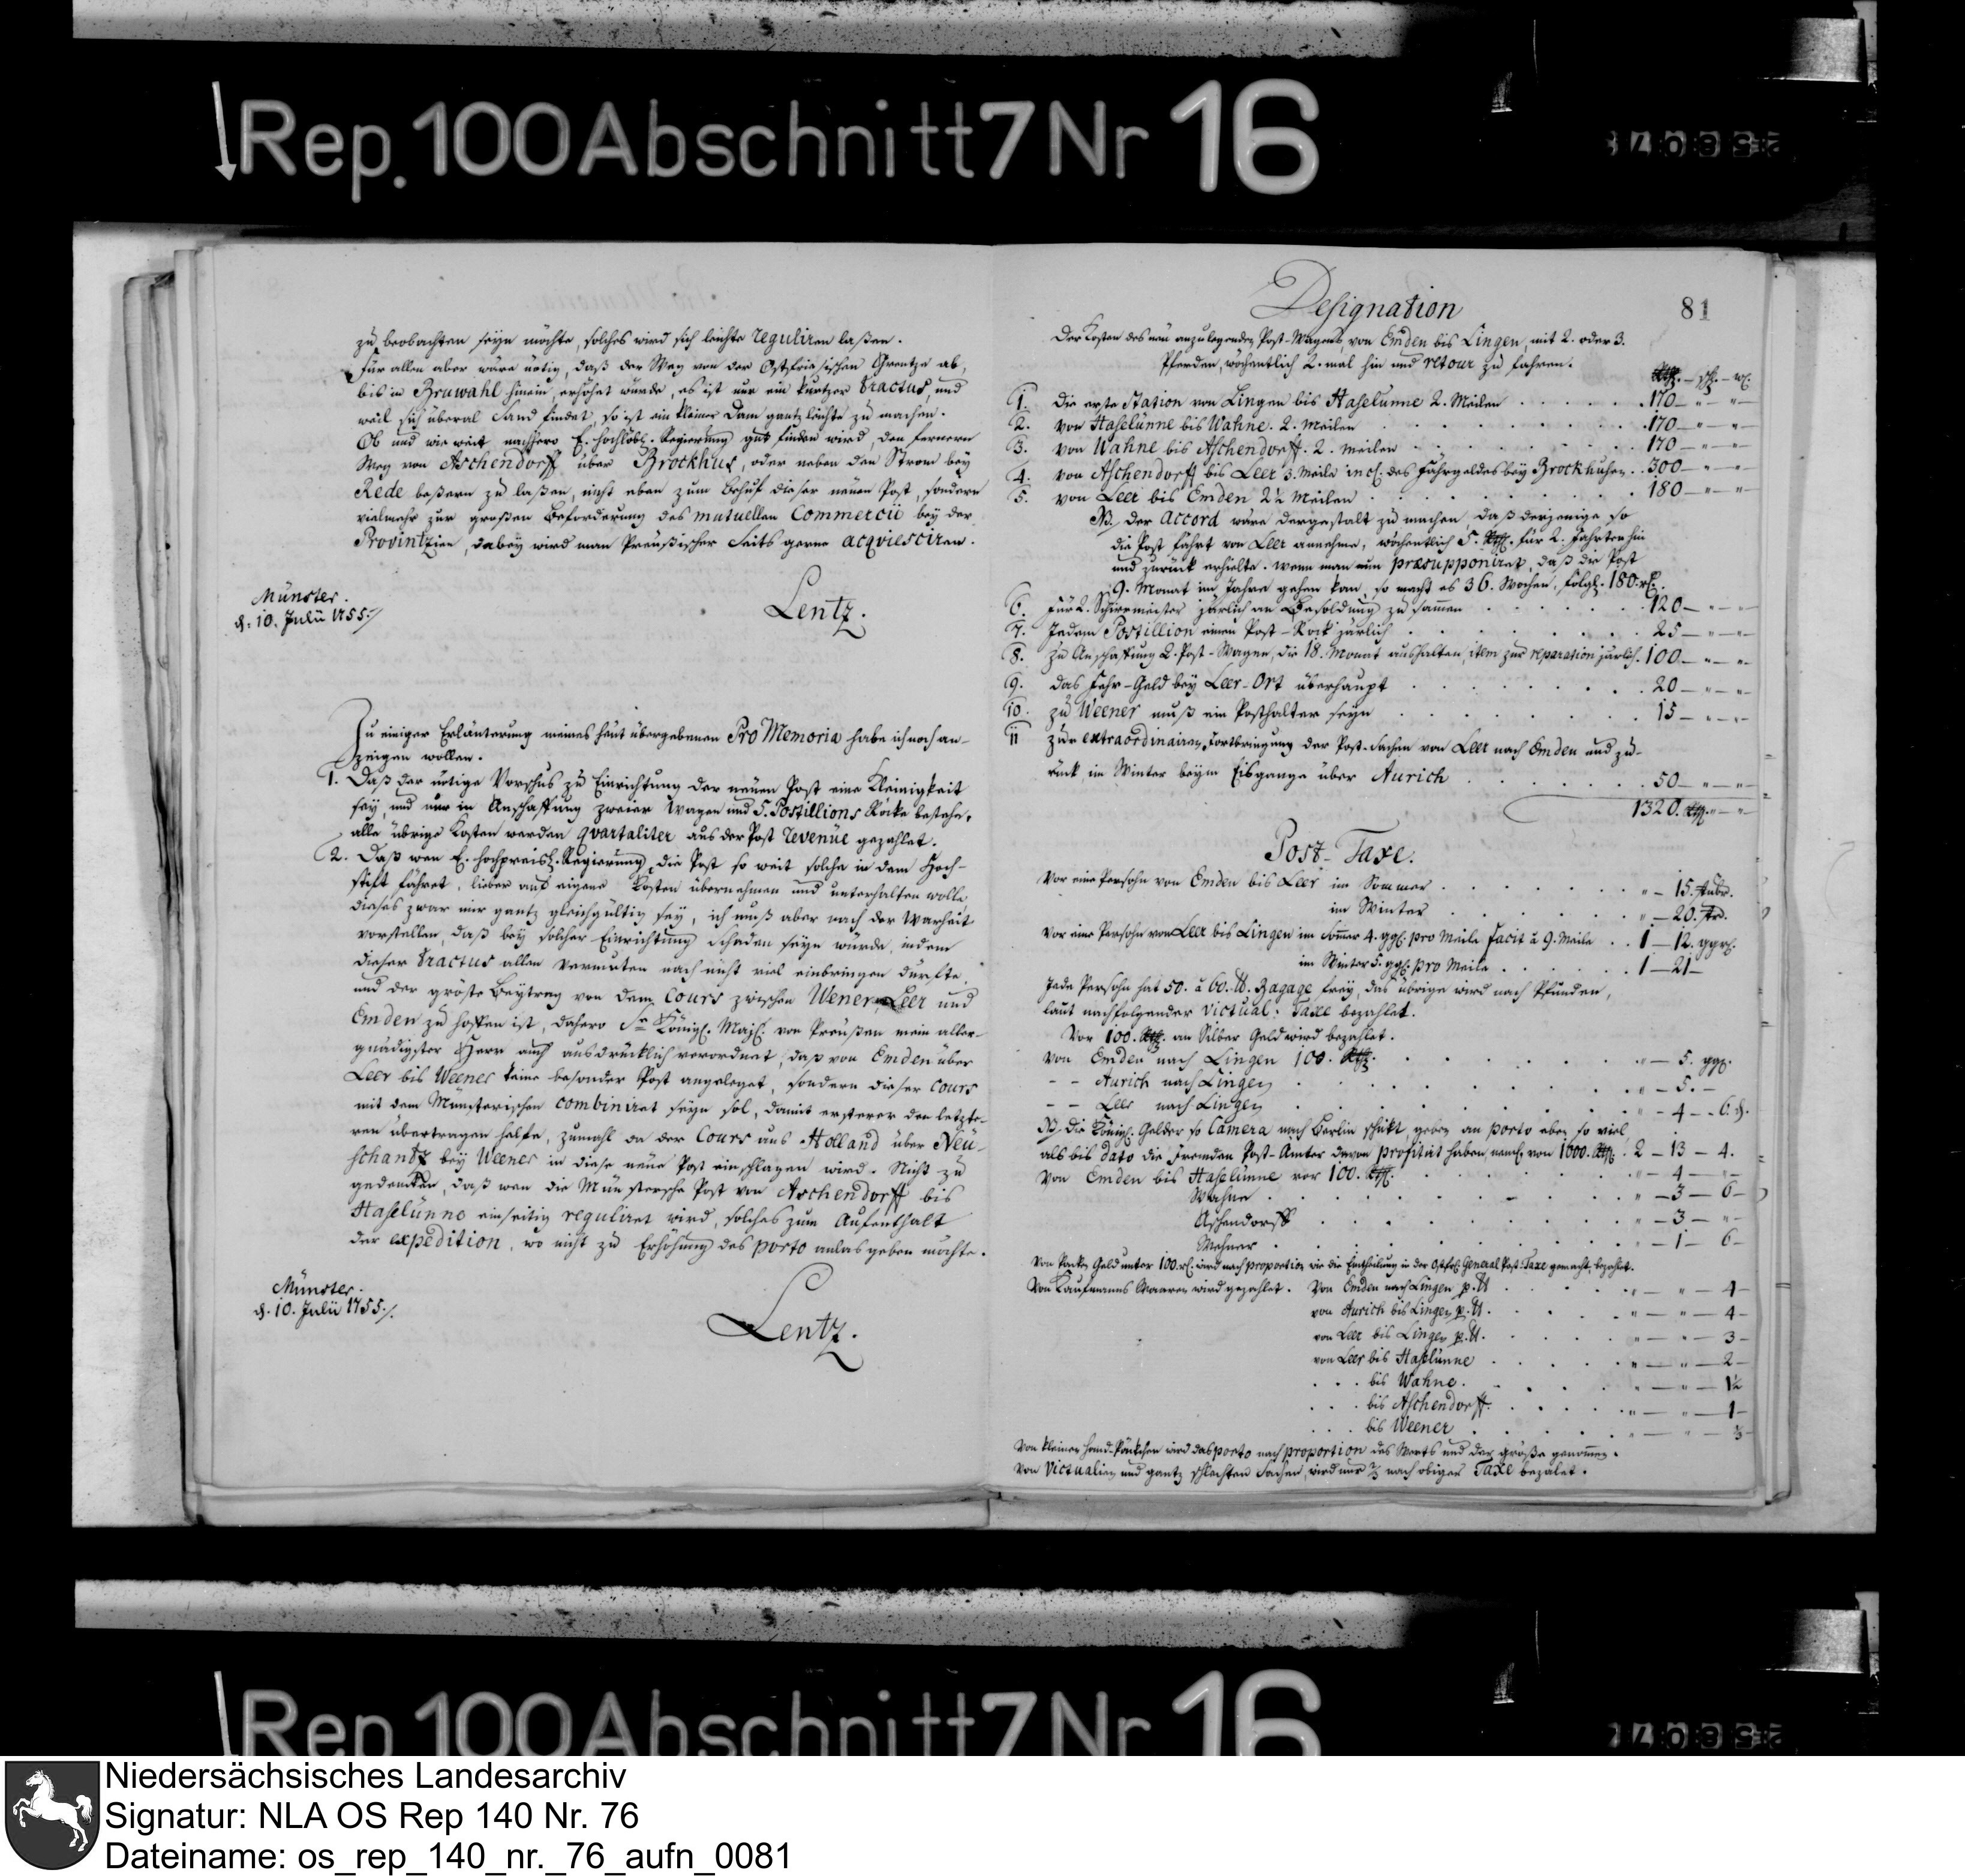 Rep. 100 Abschnitt 7 Nr 16
zu beobachten seyn möchte, solches wird sich leichte reguliren laßen.
Für allen aber wäre nötig, daß der Weg von der Ostfriesischen Grentze ab,
bis in Bruwahl hinein, erhöhet würde, es ist nur ein kurtzer tractus, und
weil sich überal Sand findet, so ist ein kleiner Dam gantz leichte zu machen.
Ob und wie weit nachhero E. Hochlöbl. Regierung gut finden wird, den fernern
Weg von Aschendorff über Brockhus, oder neben den Strom bey
Rede beßern zu laßen, nicht eben zum Behuf dieser neuen Post, sondern
vielmehr zur großen Beforderung des mutuellen Commercii bey der
Provintzien, dabey wird man Preußischer Seits gerne acqviesciren.
Münster.
d. 10. Julii 1755./
Lentz.
Zu einiger Erläuterung meines heut übergebenen Pro Memoria habe ich noch an-
zeigen wollen.
1. Daß der nötige Vorschus zu Einrichtung der neuen Post eine Kleinigkeit
sey, und nur in Anschaffung zweier Wagen und 5. Postillions Röcke bestehe,
alle übrige Kosten werden qvartaliter aus der Post revenüe gezahlet.
2. Daß wen E. Hochpreisl. Regierung die Post so weit solche in dem Hoch-
stift fähret, lieber auf eigene Kosten übernehmen und unterhalten wolle
dieses zwar mir gantz gleichgültig sey, ich muß aber nach der Warheit
vorstellen, daß bey solcher Einrichtung Schaden seyn würde, indem
dieser tractus allen vermuten nach nicht viel einbringen dürfte
und der gröste Beytrag von dem Cours zwischen Wener, Leer und
Emden zu hoffen ist, dahero Sr. Königl. Majs. von Preußen mein aller-
gnädigster Herr auch ausdrücklich verordnet, daß von Emden über
Leer bis Weener keine besonder Post angeleget, sondern dieser Cours
mit dem Münsterischen combiniret seyn sol, damit ersterer den letzte-
ren übertragen helfe, zumahl da der Cours aus Holland über Neü-
schantz bey Weener in diese neue Post einschlagen wird. Nicht zu
gedencken, daß wen die Münstersche Post von Aschendorff bis
Haselünne einseitig reguliret wird, solches zum Aufenthalt
der expedition, wo nicht zu Erhöhung des porto anlas geben möchte.
Münster.
d. 10. Julii 1755./.
Lentz.
81
Designation
Der Kosten des neu anzulegenden Post-Wagens, von Emden bis Lingen, mit 2. oder 3.
Pferden, wöchentlich 2. mal hin und retour zu fahren.
1. Die erste Station von Lingen bis Haselünne 2. Meilen . . . 170 — " — "
2. von Haselünne bis Wahne. 2. Meilen . . . 170 — " — "
3. von Wahne bis Aschendorff. 2. Meilen . . . 170 — " — "
4. von Aschendorff bis Leer 3. Meile incl. des Fährgeldes bey Brockhusen . . 300 — " — "
5. von Leer bis Emden 2½ Meilen . . . 180 — " — "
NB. der accord wäre dergestalt zu machen, daß derjenige so
die Post fährt von Leer annehme, wöchentlich 5. Rthl. für 2. Fahrten hin
und zurück erhielte. wenn man nun præsupponiret, daß die Post
9. Monat im Jahre gehen kan, so macht es 36. Wochen, folgl. 180 rl.
6. Für 2. Schirrmeister järlich an Besoldung zusammen . . . 120 — " — "
7. Jedem Postillion einen Post-Rock järlich . . . 25 — " — "
8. Zu Anschaffung 2. Post-Wagen, die 18. Monat aushalten, item zur reparation järlich. 100 — " — "
9. das Fehr-Geld bey Leer-Ort überhaupt . . . 20 — " — "
10. zu Weener muß ein Posthalter seyn . . . 15 — " — "
11 zur extraordinairen Fortbringung der Post-Sachen von Leer nach Emden und zu-
rück im Winter beym Eisgange über Aurich . . . 50 — " — "
1320. Rthl. " — "
Post-Taxe.
Vor eine Persohn von Emden bis Leer im Sommer . . . " — 15. stübr.
im Winter . . . " — 20. str.
Vor eine Persohn von Leer bis Lingen im Somer 4. ggl. pro Meile facit à 9. Meile . . 1 — 12. ggr.
im Winter 5. ggl. pro Meile . . . 1 — 21 —
Jede Persohn hat 50. à 60. lb. Bagage frey, das übrige wird nach Pfunden,
laut nachfolgender Victual: Taxe bezahlet.
Vor 100. Rthl. an Silber Geld wird bezahlet.
von Emden nach Lingen 100. Rthl. . . . " — 5. ggl.
- - Aurich nach Lingen . . . " — 5. —
- - Leer nach Lingen . . . " — 4 — 6. d.
NB. Die Königl. Gelder so Camera nach Berlin schickt, geben an porto eben so viel,
als bis dato die fremden Post-Ämter davon profitirt haben, nemlich von 1000. Rthl. . 2 — 13 — 4.
Von Emden bis Haselünne vor 100. Rthl. . . . " — 4 — " —
Wahne . . . " — 3 — 6 —
Aschendorff . . . " — 3 — " —
Wehner . . . " — 1 — 6 —
Von Packen Geld unter 100. rl. wird nach proportion wie die Eintheilung in der Ostfrs. General Post-Taxe gemacht, bezahlet.
Von Kaufmanns Waaren wird gezahlet. Von Emden nach Lingen p. lb . . . " — " — 4 —
von Aurich bis Lingen p. lb. . . . " — " — 4 —
von Leer bis Lingen p. lb. . . . " — " — 3 —
von Leer bis Haselünne . . . " — " — 2 —
. . . bis Wahne. . . . " — " — 1½
. . . bis Aschendorff. . . . " — " — 1 —
. . . bis Weener . . . " — " —
Von kleinen Hand-Päckchen wird das porto nach proportion des Werts und der größe genommen.
Von Victualien und gantz schlechten Sachen, wird nur ⅔ nach obiger Taxe bezalet.
Rep 100 Abschnitt 7 Nr 16
Niedersächsisches Landesarchiv
Signatur: NLA OS Rep 140 Nr. 76
Dateiname: os_rep_140_nr._76_aufn_0081